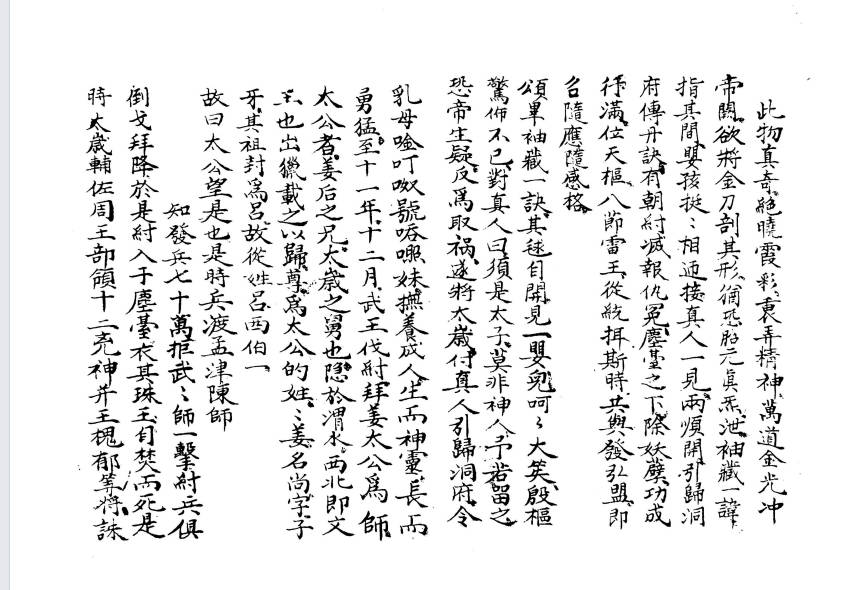 此物真奇絕曉霞彩裏弄精神萬道金光冲
帝闕欲將金刀剖其形猶恐胎元真炁泄袖藏一諱
指其間嬰孩挺〻相迊接真人一見兩頰開引歸洞
府傳丹訣有朝紂滅報仇冤塵臺之下除妖孽功成
行滿位天樞八節雷王從統揖斯時共與發弘盟即
召隨應隨感格
頌畢袖藏一訣其毬自開見一嬰兒呵〻大笑殷樞
驚怖不已對真人曰須是太子莫非神人予若留之
恐帝生疑反為取禍遂將太歲付真人引歸洞府令
乳母唫叮呶號呑嘿妹撫養成人生而神靈長而
勇猛至十一年十二月武王伐紂拜姜太公為師
太公者姜后之兄太歲之舅也隱於渭水西北即文
王也出獵載之以歸尊為太公的姓〻姜名尚字子
牙其祖封為呂故從姓呂西伯一
故曰太公望是也是時兵渡孟津陳師
知發兵七十萬拒武〻師一擊紂兵俱
倒戈拜降於是紂入于塵臺衣其珠玉自焚而死是
時太歲輔佐周王部領十二克神并王槐郁等將誅